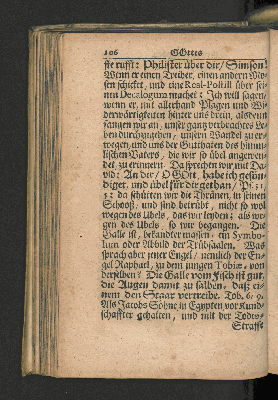 106 GOttes
ste rufft: Philister über dir / Simson!
Wenn er einen Treiber, einen andern
schicket, und eine Real-Postill über sei-
nen Decalogum machet: Ich will sagen,
wenn er, mit allerhand Plagen und Wi-
derwärtigkeiten hinter uns drein, alsdenn
fangen wir an, unser gantz verbrachtes Le-
ben durchzugehen, unsern Wandel zu er-
wegen, und uns der Gutthaten des himm-
lischen Vaters, die wir so übel angewen-
det, zu erinnern. Da sprechen wir mit Da-
vid: An dir / O GOtt, habe ich gesün-
diget, und übel für dir gethan / Ps. 51,
: da schütten wir die Thränen, in seinen
Schooß, und sind betrübt, nicht so wol
wegen des Ubels, das wir leiden: als we-
gen des Ubels, so wir begangen. Die
Galle ist, bekandter massen, ein Symbo-
lum oder Abbild der Trübsaalen. Was
sprach aber jener Engel, nemlich der En-
gel Raphael, zu dem jungen Tobiæ, von
derselben? Die Galle vom Fisch ist gut,
die Augen damit zu salben, daß er
einem den Staar vertreibe. Tob. 6, 9.
Als Jacobs Söhne in Egypten vor Kund-
schaffter gehalten, und mit der Todes-
Straffe